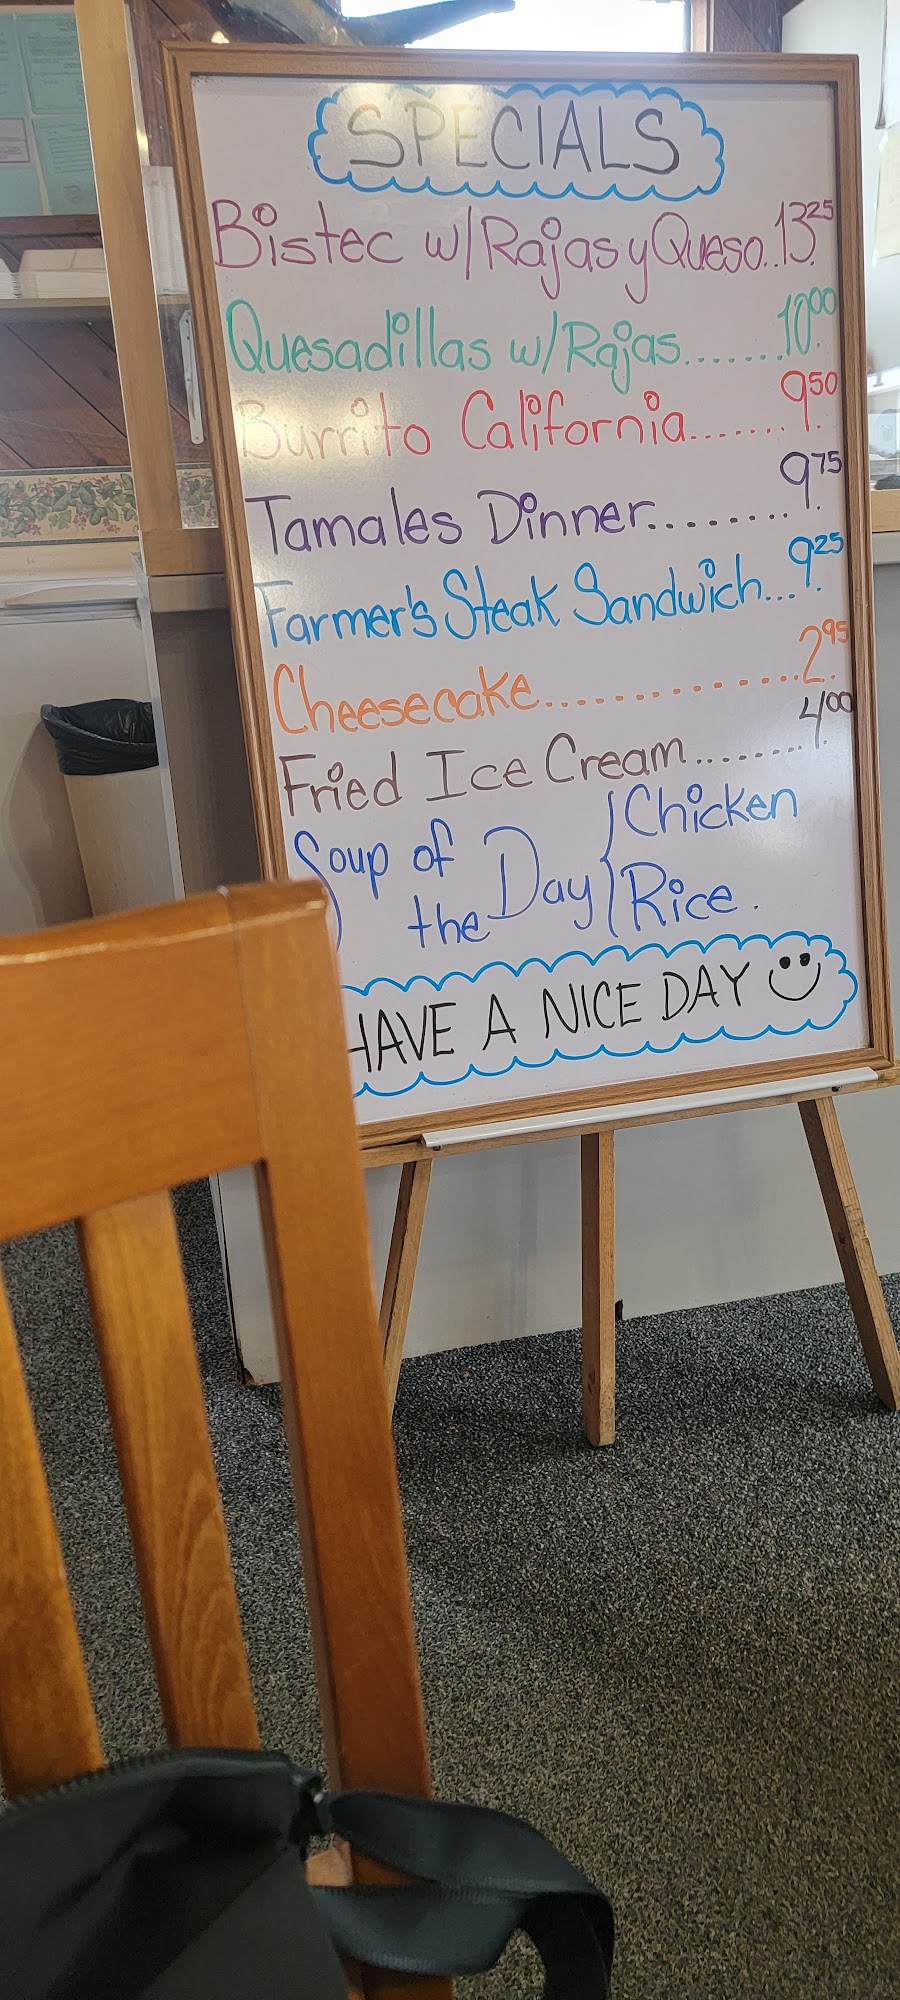 SPECIALS
Bistec w/Rajas y Queso..13.25
Quesadillas w/Rajas.......10.00
Burrito California.......9.50
Tamales Dinner........9.75
Farmer's Steak Sandwich...9.25
Cheesecake..............2.95
Fried Ice Cream........4.00
Soup of the Day { Chicken
Rice.
HAVE A NICE DAY